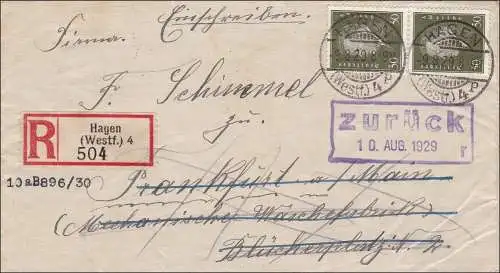 Einschreiben.
Firma.
F. Schimmel
zu.
HAGEN
(Westf.) 4
HAGEN
(Westf.) 4
50
50
R
Hagen
(Westf.) 4
504
zurück
10. AUG. 1929
r
10aB896/30
Frankfurt a/Main
(Mechanische Wäschefabrik)
Blücherplatz N.